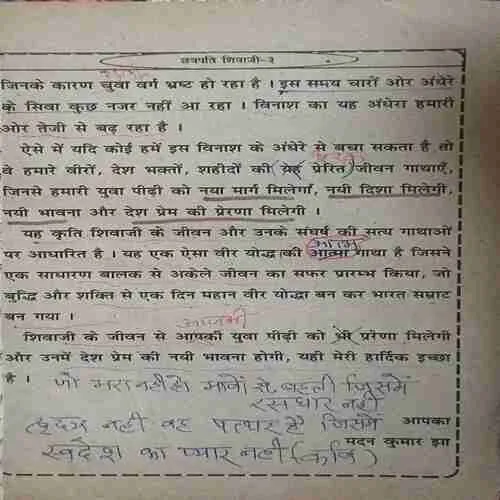 छत्रपति शिवाजी-३
जिनके कारण युवा वर्ग भ्रष्ट हो रहा है । इस समय चारों ओर अंधेरे
के सिवा कुछ नजर नहीं आ रहा । विनाश का यह अंधेरा हमारी
ओर तेजी से बढ़ रहा है ।
ऐसे में यदि कोई हमें इस विनाश के अंधेरे से बचा सकता है तो
वे हमारे वीरों, देश भक्तों, शहीदों की यह प्रेरित जीवन गाथाएँ,
जिनसे हमारी युवा पीढ़ी को नया मार्ग मिलेगा, नयी दिशा मिलेगी,
नयी भावना और देश प्रेम की प्रेरणा मिलेगी ।
यह कृति शिवाजी के जीवन और उनके संघर्ष की सत्य गाथाओं
पर आधारित है । यह एक ऐसा वीर योद्धा की आत्मा गाथा है जिसने
एक साधारण बालक से अकेले जीवन का सफर प्रारम्भ किया, जो
बुद्धि और शक्ति से एक दिन महान वीर योद्धा बन कर भारत सम्राट
बन गया ।
शिवाजी के जीवन से आपकी युवा पीढ़ी को भी प्ररेणा मिलेगी
और उनमें देश प्रेम की नयी भावना होगी, यही मेरी हार्दिक इच्छा
है ।
जो भरा नहीं है भावों से बहती जिसमें
रसधार नहीं
हृदय नहीं वह पत्थर है जिसमें
आपका
मदन कुमार झा
स्वदेश का प्यार नहीं (कवि)